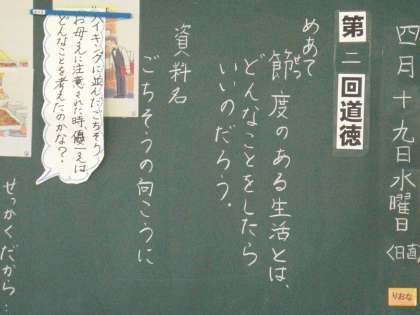 四月十九日水曜日
〈日直
りおな
第二回道徳
めあて
節度のある生活とは、
せつ
どんなことをしたら
いいのだろう。
資料名
ごちそうの向こうに
バイキングに並んだごちそう
お母さんに注意された時、優一えは
どんなことを考えたのかな?
せっかくだから…